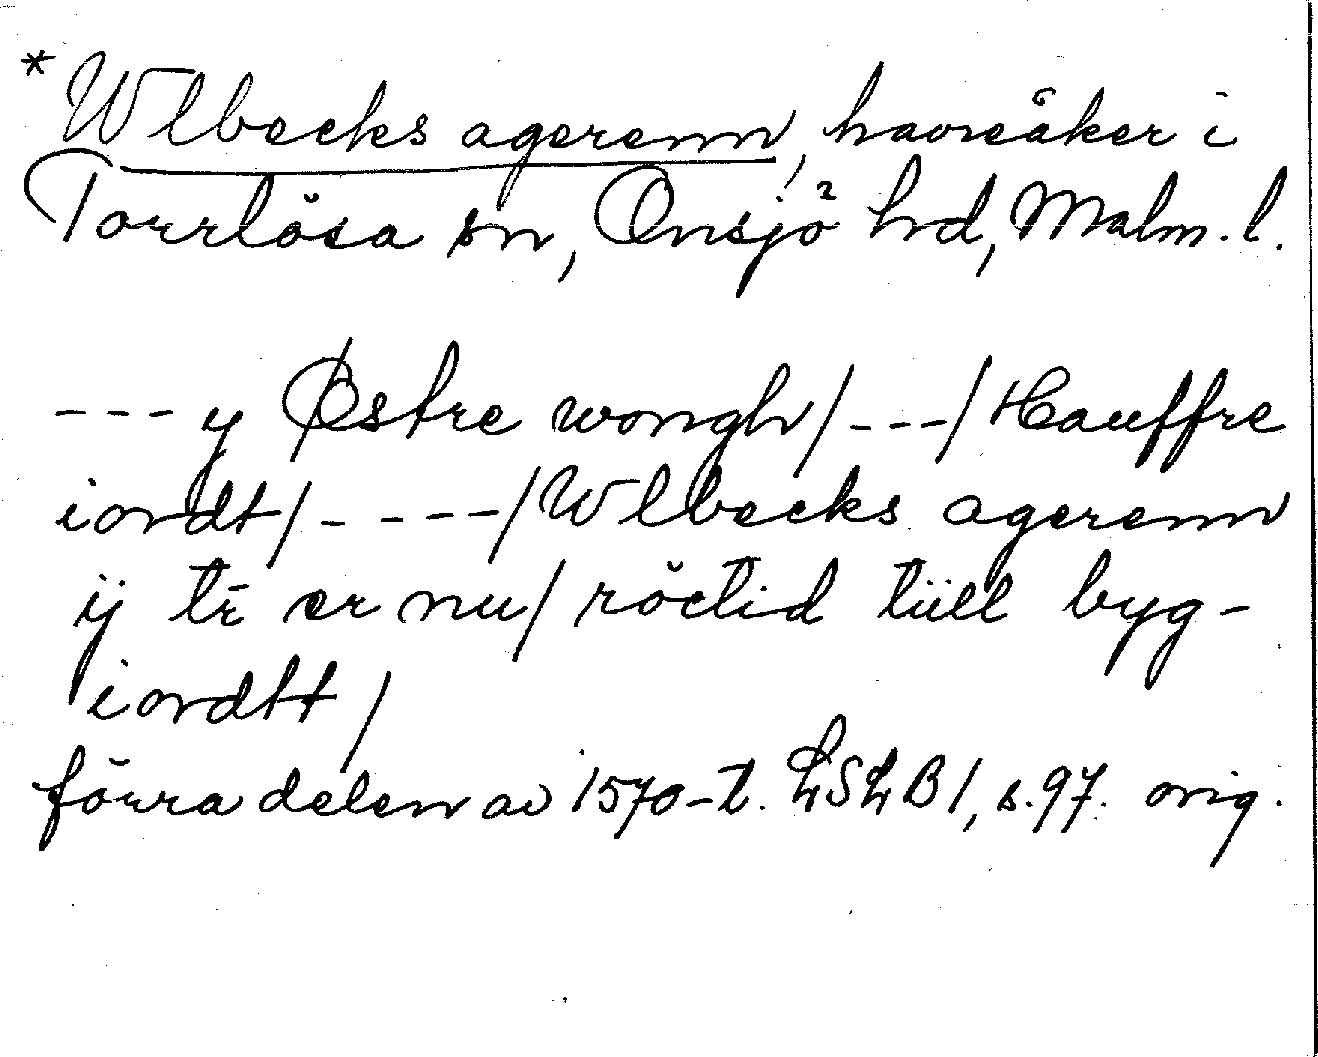 *Wlbecks agerenn, havreåker i
Torrlösa sn, Onsjö hd, Malm. l.
---y Østre wongh/---/Hauffre
iordt/----/Wlbecks agerenn
ij tr̄ er nu/röctid tiill byg-
iordtt/
förra delen av 1570-t. LSLB1, s.97. orig.